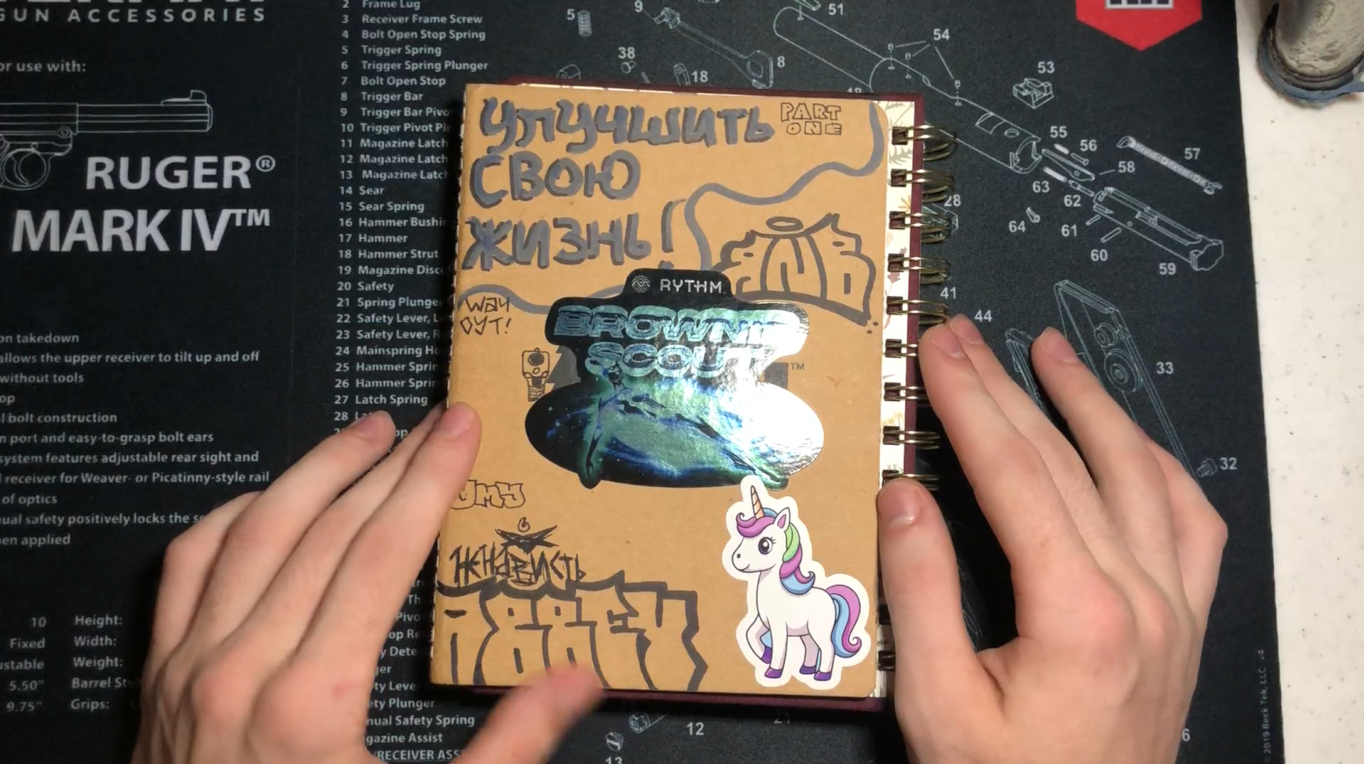 GUN ACCESSORIES
or use with:
RUGER®
MARK IV™
on takedown
allows the upper receiver to tilt up and off
without tools
op
l bolt construction
n port and easy-to-grasp bolt ears
system features adjustable rear sight and
l receiver for Weaver- or Picatinny-style rail
of optics
ual safety positively locks the
en applied
10 Height:
Fixed Width:
ustable Weight:
5.50" Barrel
9.75" Grips:
2 Frame Lug
3 Receiver Frame Screw
4 Bolt Open Stop Spring
5 Trigger Spring
6 Trigger Spring Plunger
7 Bolt Open Stop
8 Trigger Bar
9 Trigger Bar
10 Trigger Pivot
11 Magazine Latch
12 Magazine Latch
13 Magazine Latch
14 Sear
15 Sear Spring
16 Hammer
17 Hammer
18 Hammer Strut
19 Magazine
20 Safety
21 Spring Plunger
22 Safety Lever,
23 Safety Lever,
24 Mainspring
25 Hammer
26 Hammer
27 Latch Spring
28
УЛУЧШИТЬ
PART
ONE
СВОЮ
ЖИЗНЬ!
WAY
OUT!
RYTHM
BROWNIE
SCOUT™
НЕНАВИСТЬ
ty Plunger
nual Safety Spring
agazine Assist
/RECEIVER
5
9
38
18
8
51
54
53
55
56
58
57
63
62
64
61
60
59
28
41
44
33
32
12
13
©2019 Beck Tek, LLC